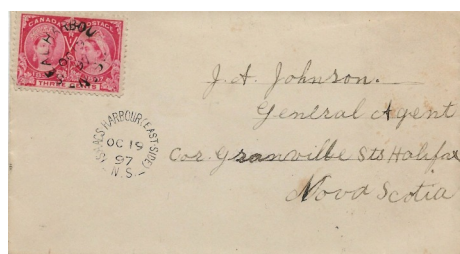 CANADA POSTAGE
THREE CENTS
ISAACS HARBOUR (EAST SIDE)
OC 19
97
N.S.
J. A. Johnson.
General Agent
Cor Granville Sts Halifax
Nova Scotia